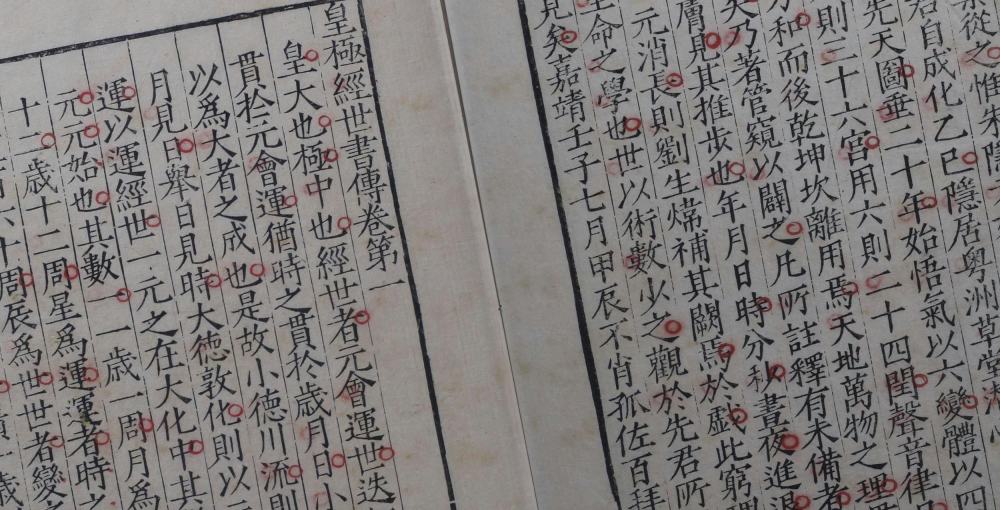 從之惟朱隱
君自成化乙巳隱居粵洲草堂
先天圖垂二十年始悟氣以六變體以四
則三十六宮用六則二十四閏聲音律
和而後乾坤坎離用焉天地萬物之理
矣乃著管窺以闢之凡所註釋有未備者
膚見其推步也年月日時分秋晝夜進退
元消長則劉生煒補其闕焉於戲此窮理
生命之學也世以術數少之觀於先君所
見矣嘉靖壬子七月甲辰不肖孤佐百拜
皇極經世書傳卷第一
皇大也極中也經世者元會運世迭
貫於元會運猶時之貫於歲月日小
以為大者之成也是故小德川流則
月見日舉日見時大德敦化則以元
運以運經世一元之在大化中其
元元始也其數一一歲一周月為
十二歲十二周星為運運者時之
六十周辰為世世者變之